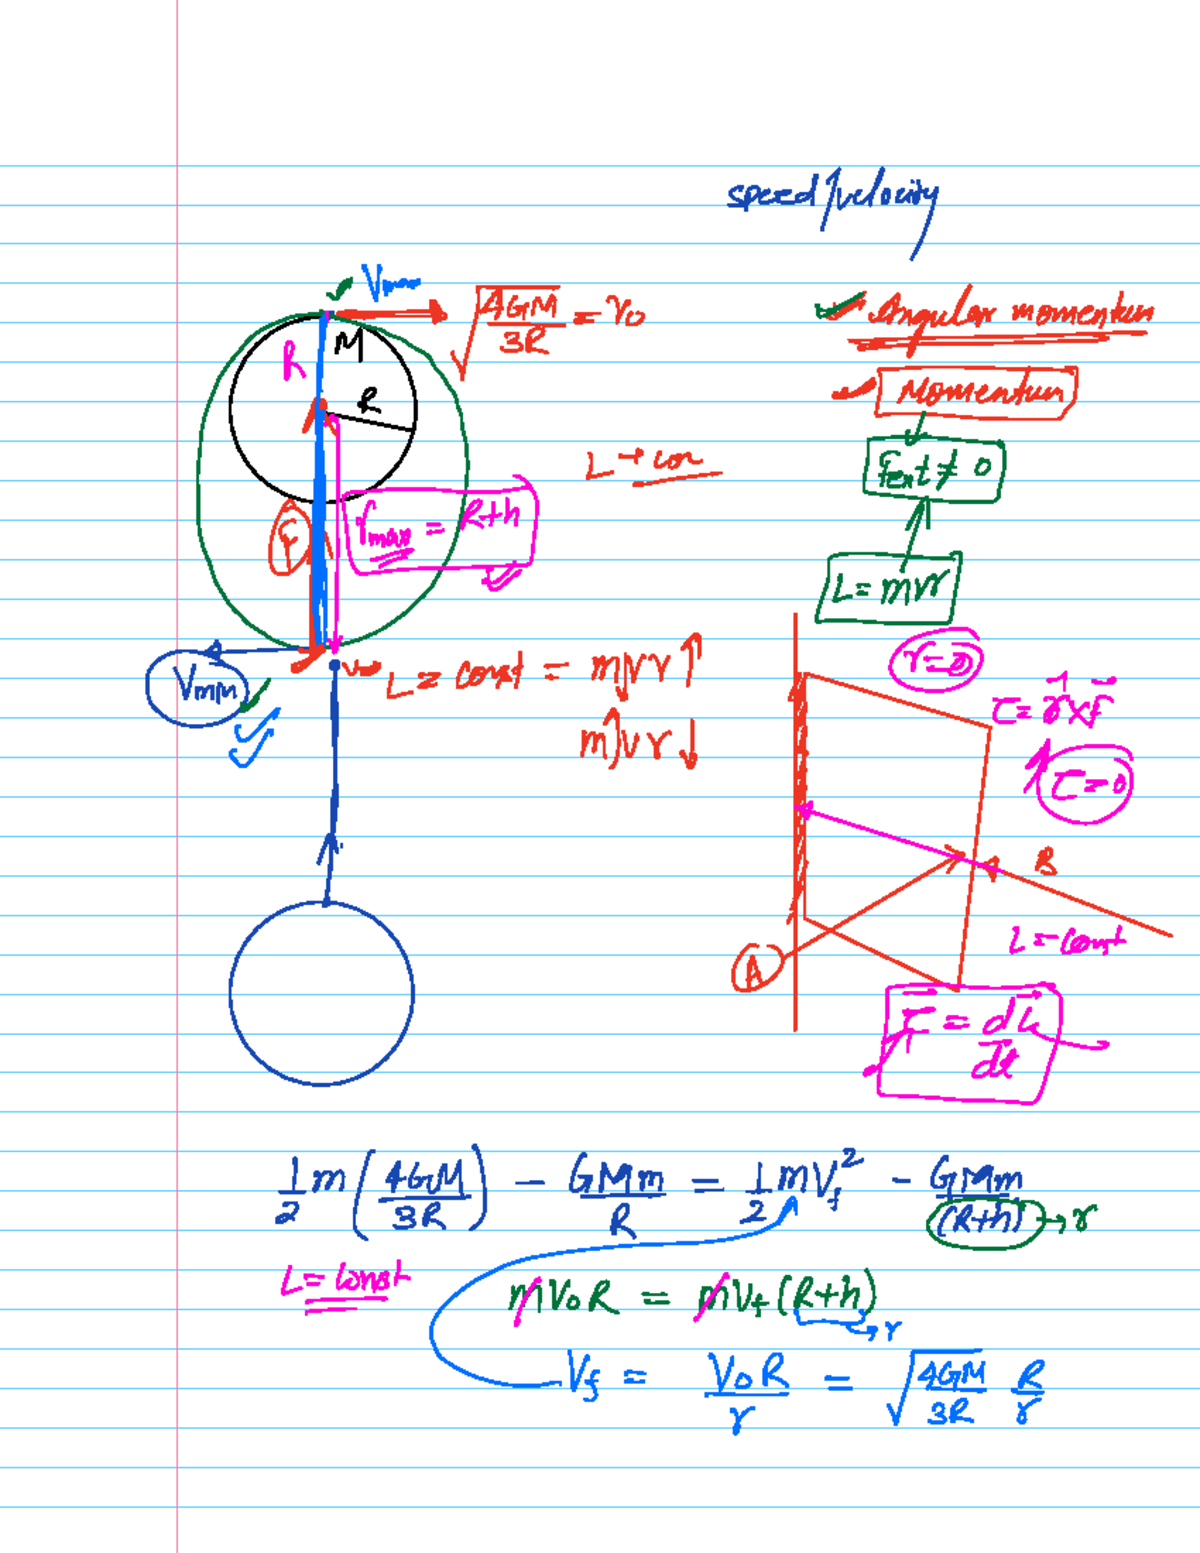 speed/velocity
Vmax
√(4GM/3R) = v0
M
R
R
Angular momentum
Momentum
Fext ≠ 0
L = mvr
L → con
rmax = R+h
F
Vmin
L = const = mvr
mvr
r=0
τ = r × F
τ=0
B
A
L = const
τ = dL/dt
1/2 m (4GM/3R) - GMm/R = 1/2 mVf² - GMm/(R+h) → r
L = const
mV0R = mVf (R+h)
→ r
Vf = V0R/r = √(4GM/3R) R/r